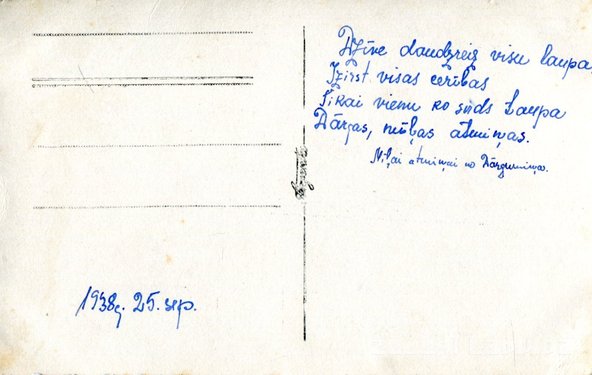 Dzīve daudzreiz visu laupa,
Izirst visas cerības
Tikai vienu ko sirds taupa
Dārgas, mīļas atmiņas.
Mīļai atmiņai no
1938g. 25. sep.